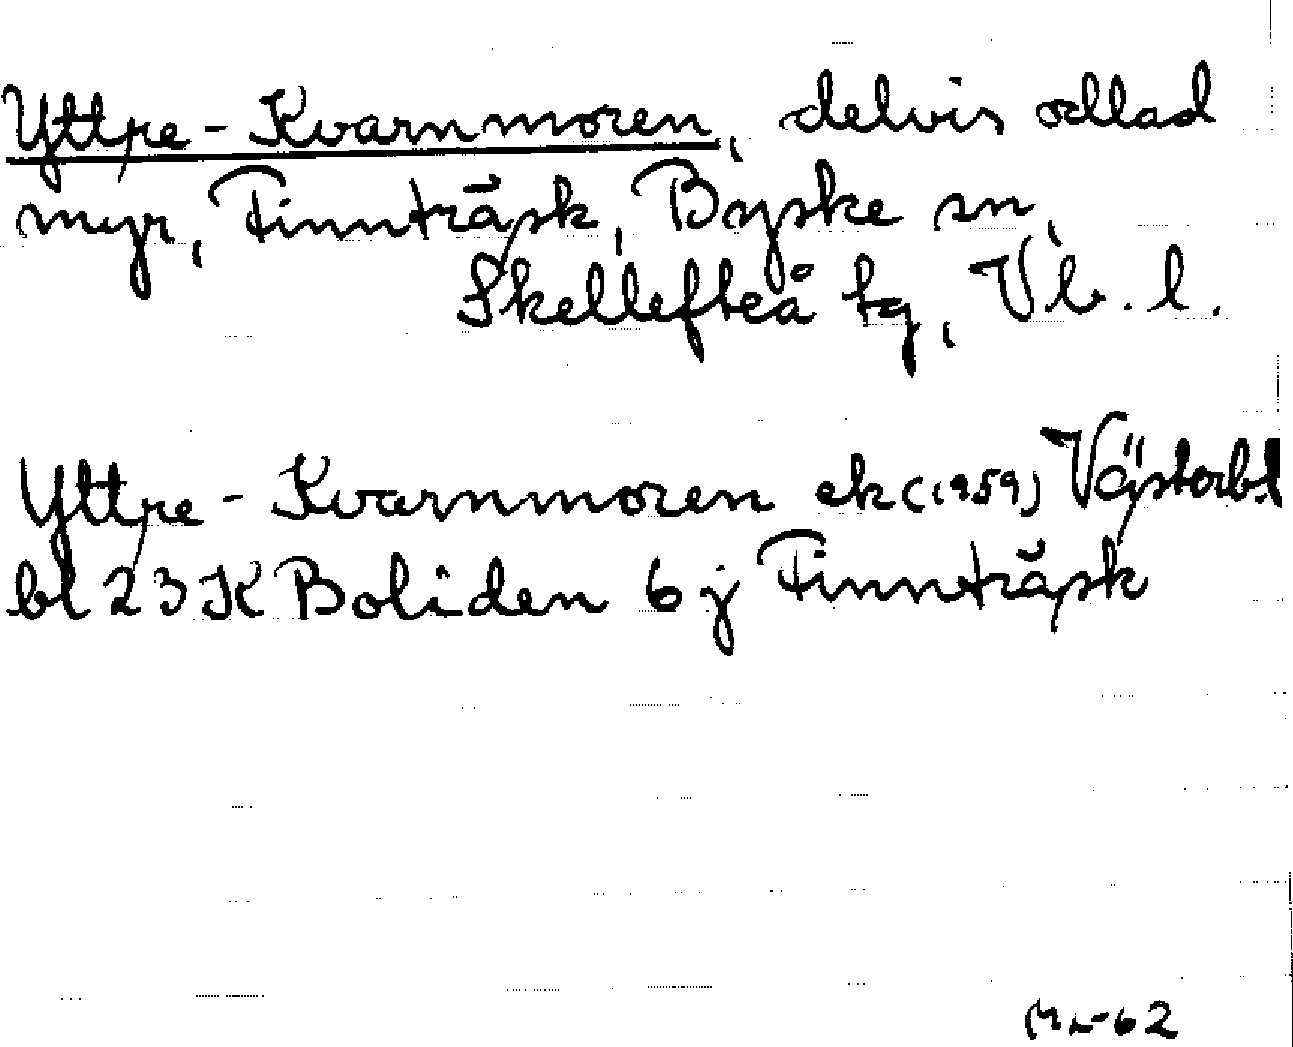 Yttre-Kvarnmoren, delvis odlad
myr, Finnträsk, Byske sn,
Skellefteå tg, Vb. l.
Yttre-Kvarnmoren ek (1959) Västerb.l
bl 23 K Boliden 6 j Finnträsk